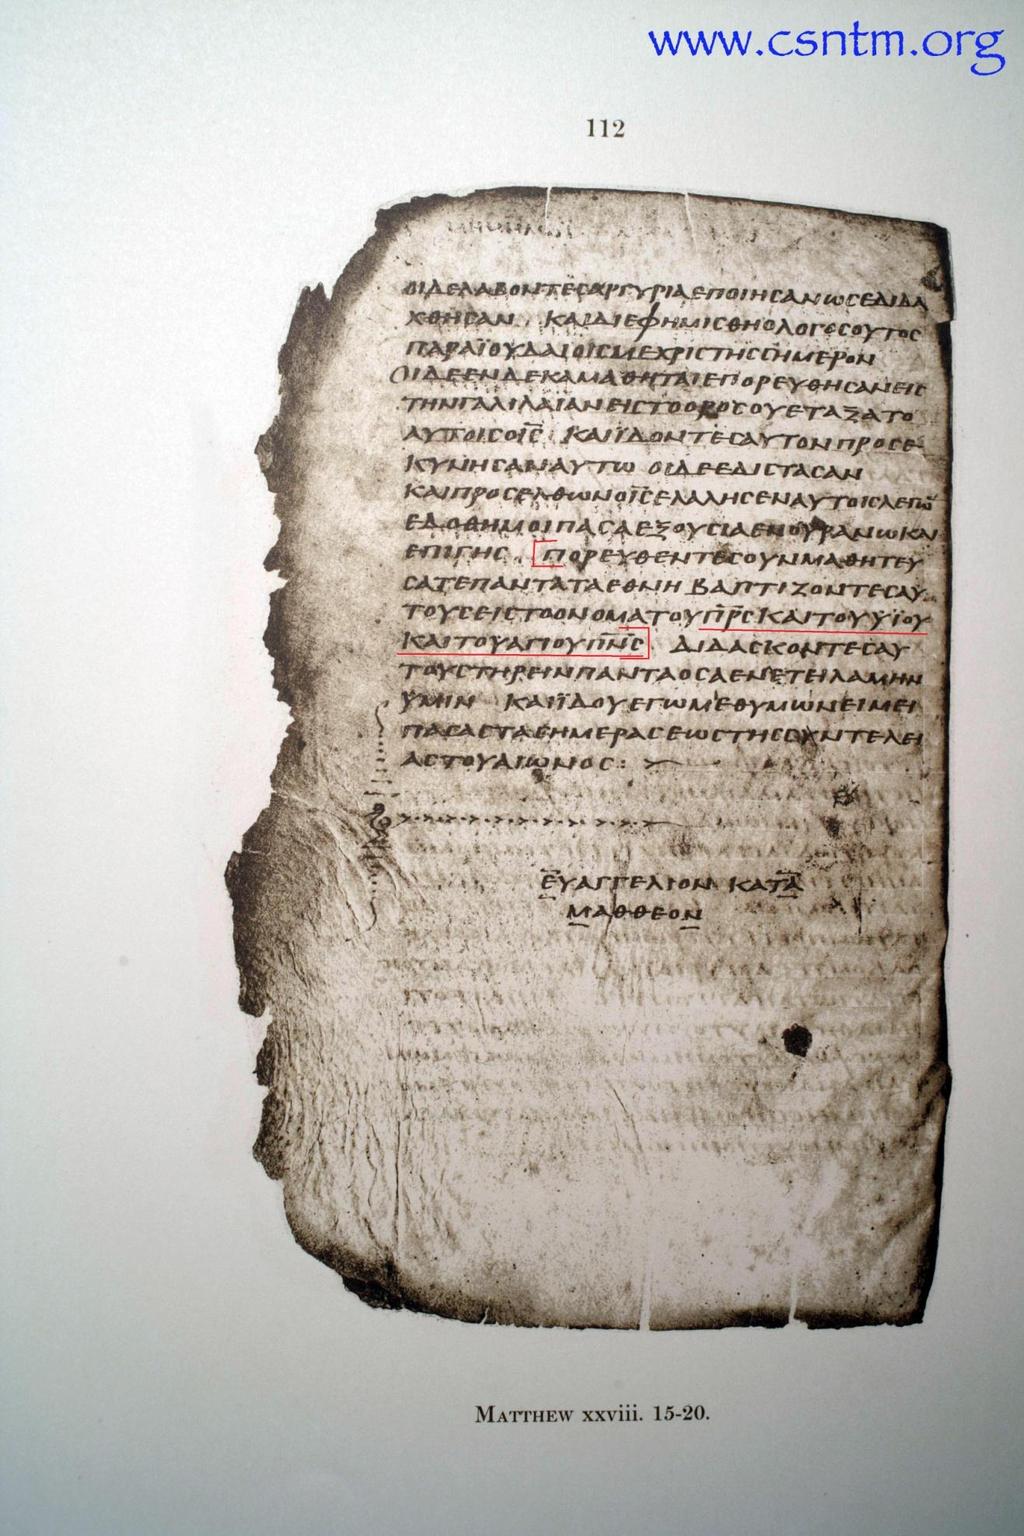 www.csntm.org
112
ΟΙΔΕΛΑΒΟΝΤΕϹΑΡΓΥΡΙΑΕΠΟΙΗϹΑΝΩϹΕΔΙΔΑ
ΧΘΗϹΑΝ ΚΑΙΔΙΕΦΗΜΙϹΘΗΟΛΟΓΟϹΟΥΤΟϹ
ΠΑΡΑΪΟΥΔΑΙΟΙϹΜΕΧΡΙϹΤΗϹϹΗΜΕΡΟΝ
ΟΙΔΕΕΝΔΕΚΑΜΑΘΗΤΑΙΕΠΟΡΕΥΘΗϹΑΝΕΙϹ
ΤΗΝΓΑΛΙΛΑΙΑΝΕΙϹΤΟΟΡΟϹΟΥΕΤΑΞΑΤΟ
ΑΥΤΟΙϹΟΙ̅Ϲ̅ ΚΑΙΪΔΟΝΤΕϹΑΥΤΟΝΠΡΟϹΕ
ΚΥΝΗϹΑΝΑΥΤΩ ΟΙΔΕΕΔΙϹΤΑϹΑΝ
ΚΑΙΠΡΟϹΕΛΘΩΝΟΙ̅Ϲ̅ΕΛΑΛΗϹΕΝΑΥΤΟΙϹΛΕΓΩ̅
ΕΔΟΘΗΜΟΙΠΑϹΑΕΞΟΥϹΙΑΕΝΟΥΡΑΝΩΚΑΙ
ΕΠΙΓΗϹ ΠΟΡΕΥΘΕΝΤΕϹΟΥΝΜΑΘΗΤΕΥ
ϹΑΤΕΠΑΝΤΑΤΑΕΘΝΗ ΒΑΠΤΙΖΟΝΤΕϹΑΥ
ΤΟΥϹΕΙϹΤΟΟΝΟΜΑΤΟΥΠ̅Ρ̅Ϲ̅ΚΑΙΤΟΥΥΪΟΥ
ΚΑΙΤΟΥΑΓΙΟΥΠ̅Ν̅Ϲ̅ ΔΙΔΑϹΚΟΝΤΕϹΑΥ
ΤΟΥϹΤΗΡΕΙΝΠΑΝΤΑΟϹΑΕΝΕΤΕΙΛΑΜΗΝ
ΥΜΙΝ ΚΑΙΪΔΟΥΕΓΩΜΕΘΥΜΩΝΕΙΜΕΙ
ΠΑϹΑϹΤΑϹΗΜΕΡΑϹΕΩϹΤΗϹϹΥΝΤΕΛΕΙ
ΑϹΤΟΥΑΙΩΝΟϹ:
ΕΥΑΓΓΕΛΙΟΝ ΚΑΤΑ
ΜΑΘΘΕΟΝ
MATTHEW xxviii. 15-20.